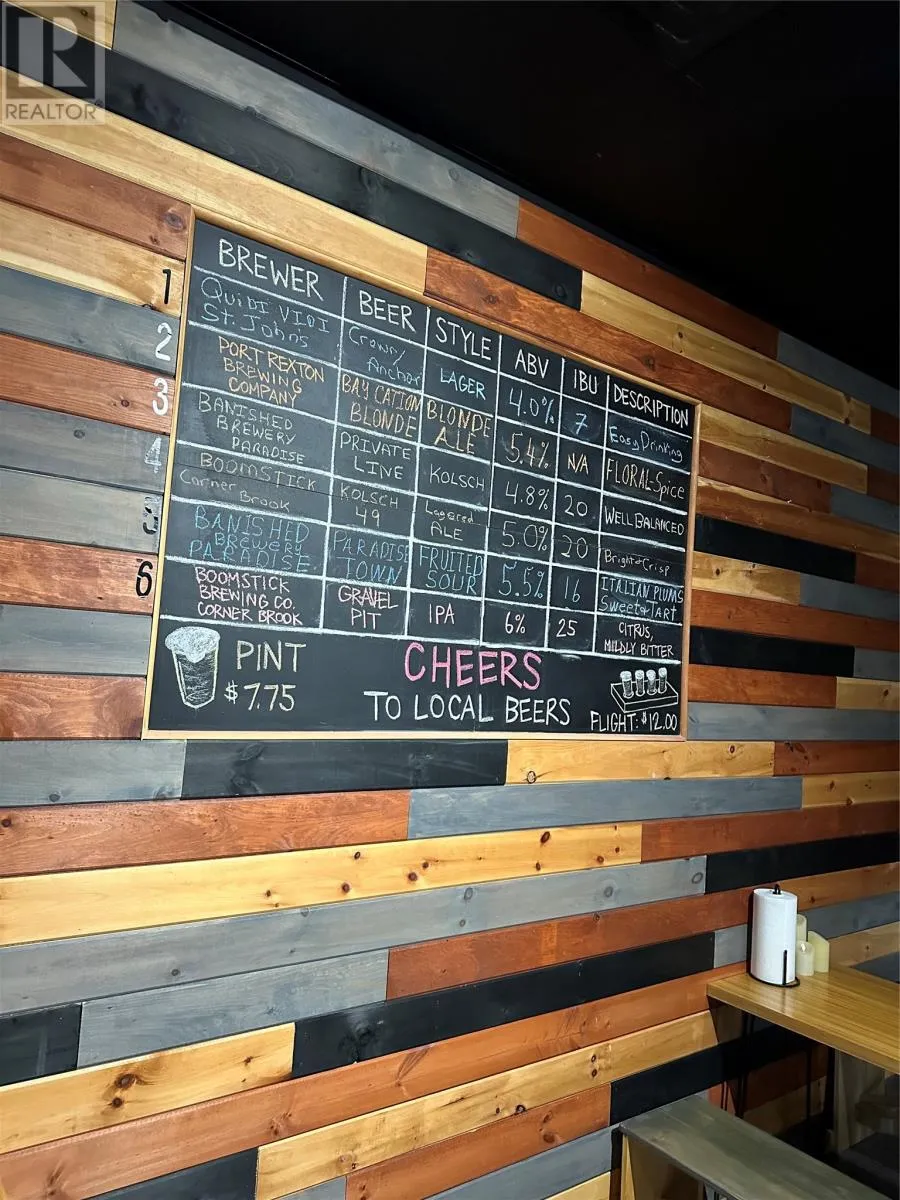 REALTOR
BREWER BEER STYLE ABV IBU DESCRIPTION
1 QuiDI VIDI St. John's Crown/ Anchor LAGER 4.0% 7 Easy Drinking
2 PORT REXTON BREWING COMPANY BAY CATION BLONDE BLONDE ALE 5.4% N/A FLORAL-Spice
3 BANISHED BREWERY PARADISE PRIVATE LINE KOLSCH 4.8% 20 WELL BALANCED
4 BOOMSTICK Corner Brook KOLSCH 49 Lagered ALE 5.0% 20 Bright+Crisp
5 BANISHED Brewery PARADISE PARADISE TOWN FRUITED SOUR 5.5% 16 ITALIAN PLUMS Sweet+Tart
6 BOOMSTICK BREWING CO. CORNER BROOK GRAVEL PIT IPA 6% 25 CITRUS, MILDLY BITTER
PINT
$7.75
CHEERS
TO LOCAL BEERS
FLIGHT: $12.00